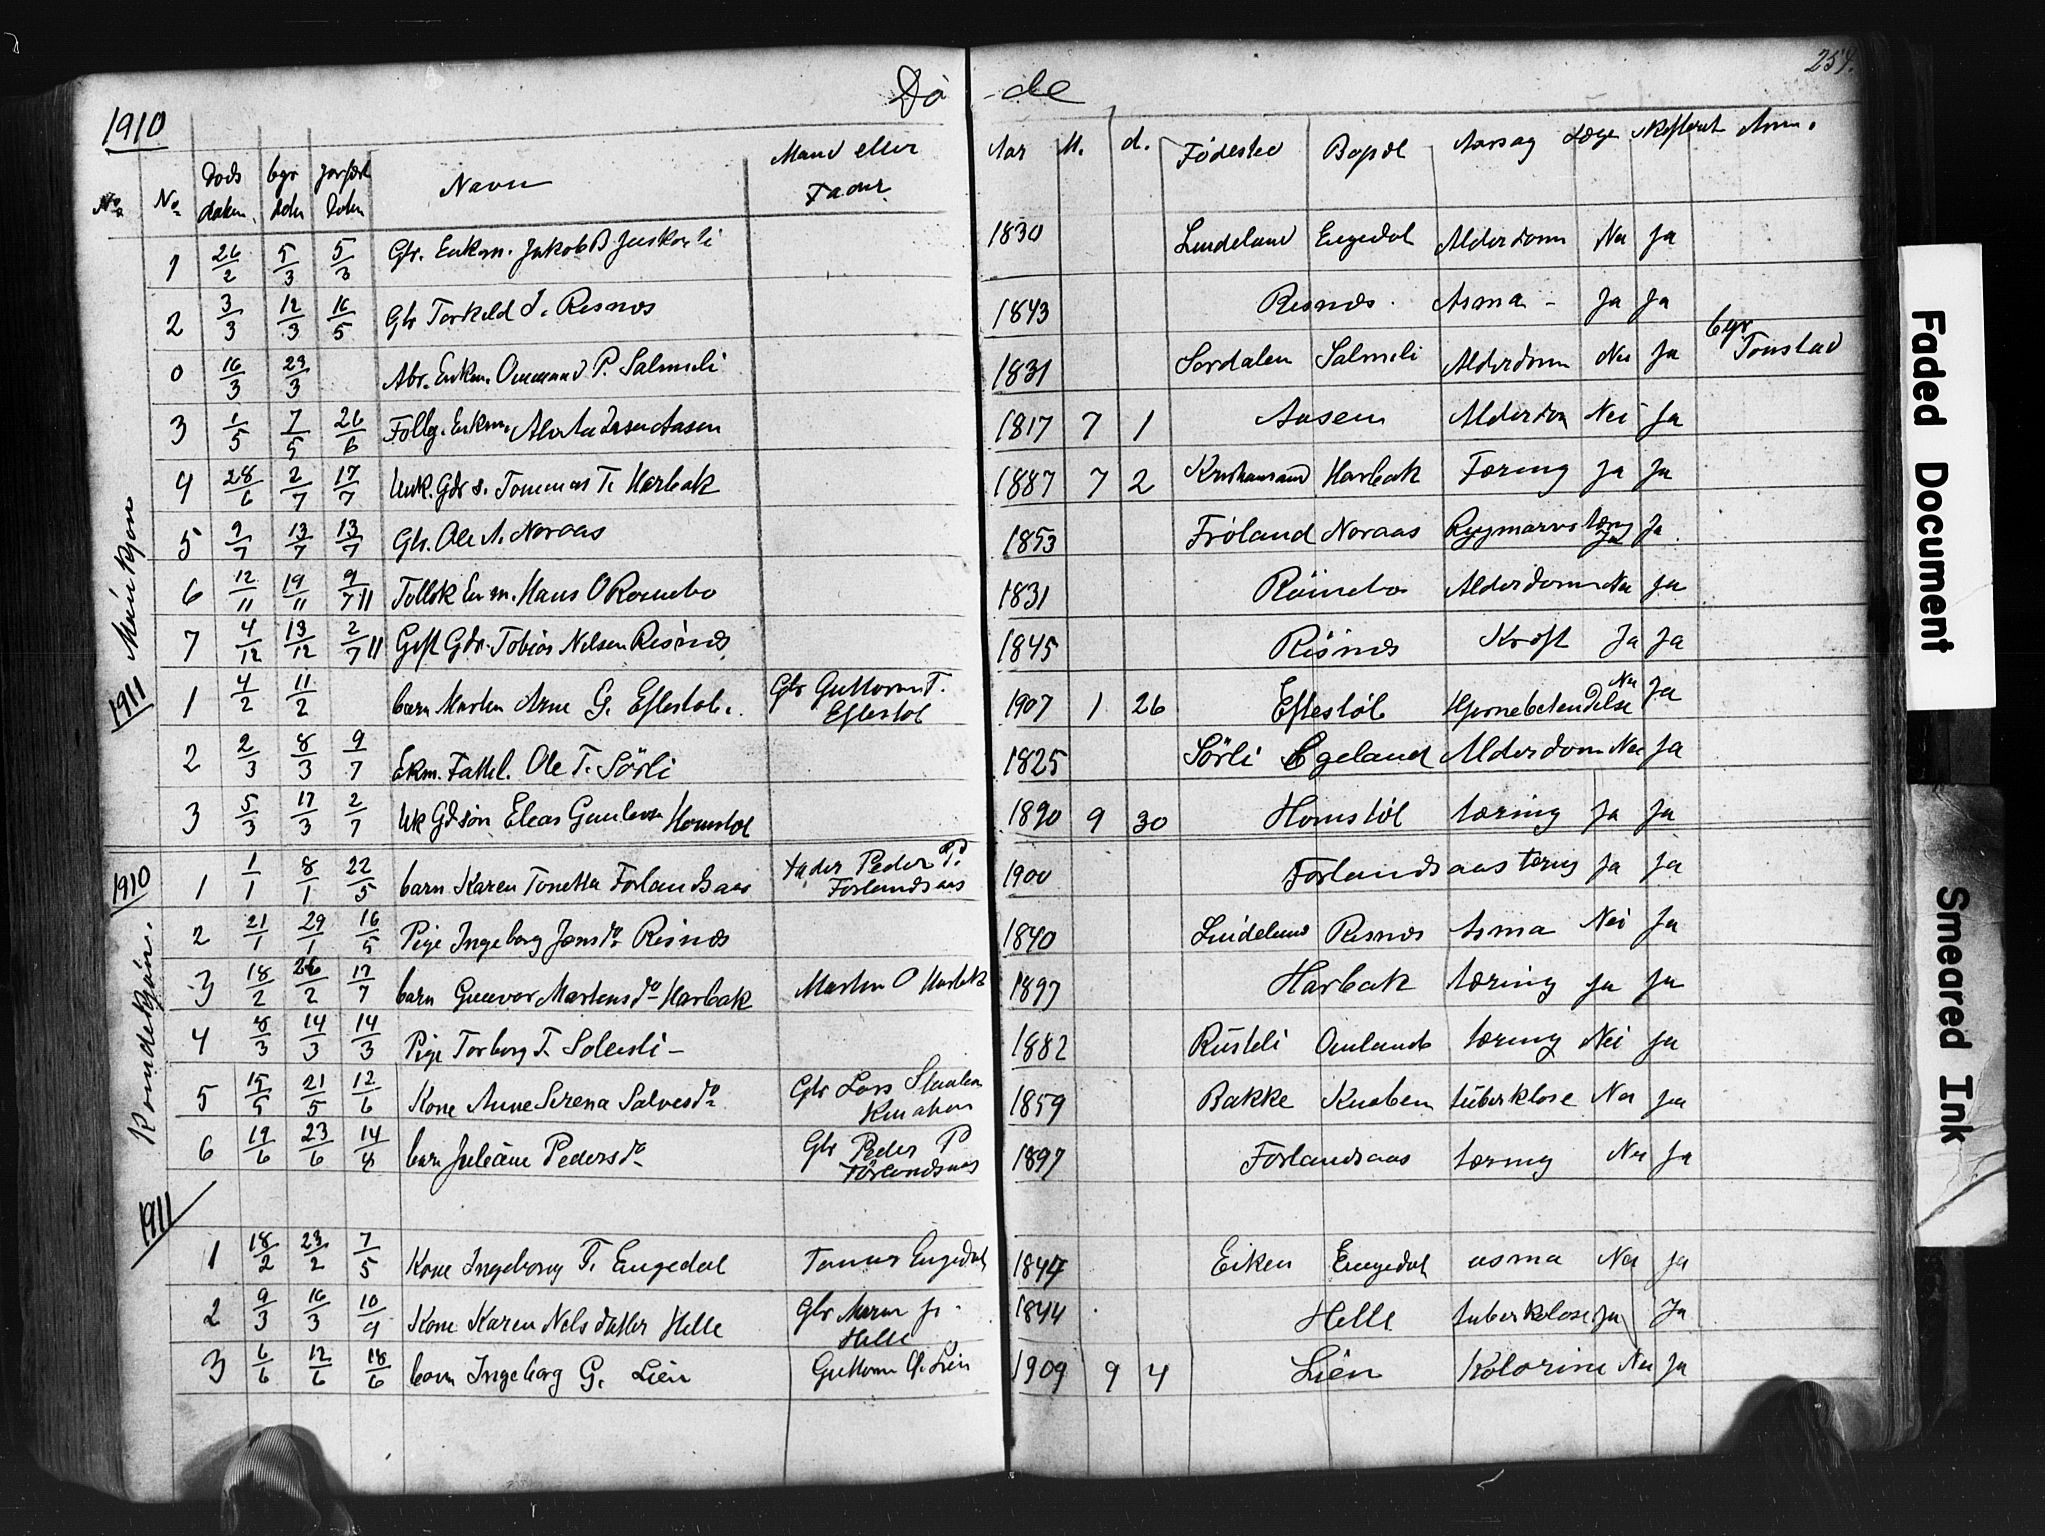 Dö -de 259.
1910
No. No. Døds daten. bgr daten jordf. Daten Navn Mand eller Fader. Aar M. d. Födested Bopæl Aarsag Læge skifteret Anm.
Mandkjön
1 26/2 5/3 5/3 Gbr. Enkm. Jakob B 1830 Lindeland Engedal Alderdom Nei Ja
2 3/3 12/3 16/5 Gbr Torkeld J. Risnes 1843 Risnes. Asma - Ja Ja
0 16/3 23/3 Abr. Enkm. Ommund P. Salmeli 1831 Sordalen Salmeli Alderdom Nei Ja bgr Tonstad
3 1/5 7/5 26/6 Follg. Enkm. Aasen 1817 7 1 Aasen Alderdom Nei Ja
4 28/6 2/7 17/7 Unk. Gdr s. Tommas T. Harbak 1887 7 2 Kristiansand Harbak Tæring Ja Ja
5 9/7 13/7 13/7 Gbr. Ole A. Noraas 1853 Fröland Noraas Rygmarvs tæring Ja Ja
6 12/11 19/11 9/7 11 Enkm. Hans O Römebo 1831 Römebo Alderdom Nei Ja
7 4/12 13/12 2/7 11 Gift Gdr. Tobias Nilsen Risnes 1845 Risnes Kræft Ja Ja
1911
1 4/2 11/2 barn Marten Arne G. Eftestöl. Gbr Guttorm T. Eftestöl 1907 1 26 Eftestöl Hjernebetendelse Nei Ja
2 2/3 8/3 9/7 Ekm. Fattel. Ole T. Sörli 1825 Sörli Egeland Alderdom Nei Ja
3 5/3 17/3 2/7 Uk Gdsön Elias Gunlevsen Homstöl 1890 9 30 Homstöl tæring Ja Ja
1910
Kvindekjön.
1 1/1 8/1 22/5 barn Karen Tonetta Förlandsaas fader Peder P. Förlandsaas 1900 Förlandsaas tæring Ja Ja
2 21/1 29/1 16/5 Pige Ingeborg Jensdr Risnes 1840 Lindeland Risnes Asma Nei Ja
3 18/2 26/2 17/7 barn Gunvor Martensdr Harbak Marten O Harbak 1897 Harbak tæring Ja Ja
4 8/3 14/3 14/3 Pige Torborg T. - 1882 Rusteli Omland tæring Nei Ja
5 15/5 21/5 12/6 Kone Anne Serena Salvesdr Gbr Lars Knaben 1859 Bakke Knaben tuberklose Nei Ja
6 19/6 23/6 14/8 barn Juliane Pedersdr Gbr Peder P Förlandsaas 1897 Förlandsaas tæring Nei Ja
1911
1 18/2 23/2 7/5 Kone Ingeborg T. Engedal Tomas Engedal 1847 Eiken Engedal asma Nei Ja
2 9/3 16/3 10/9 Kone Karen Nelsdatter Helle Gbr Helle 1844 Helle tuberkolose Ja Ja
3 6/6 12/6 18/6 barn Ingeborg G. Lien Guttorm Lien 1909 9 4 Lien Kolorine Nei Ja
Faded Document
Smeared Ink